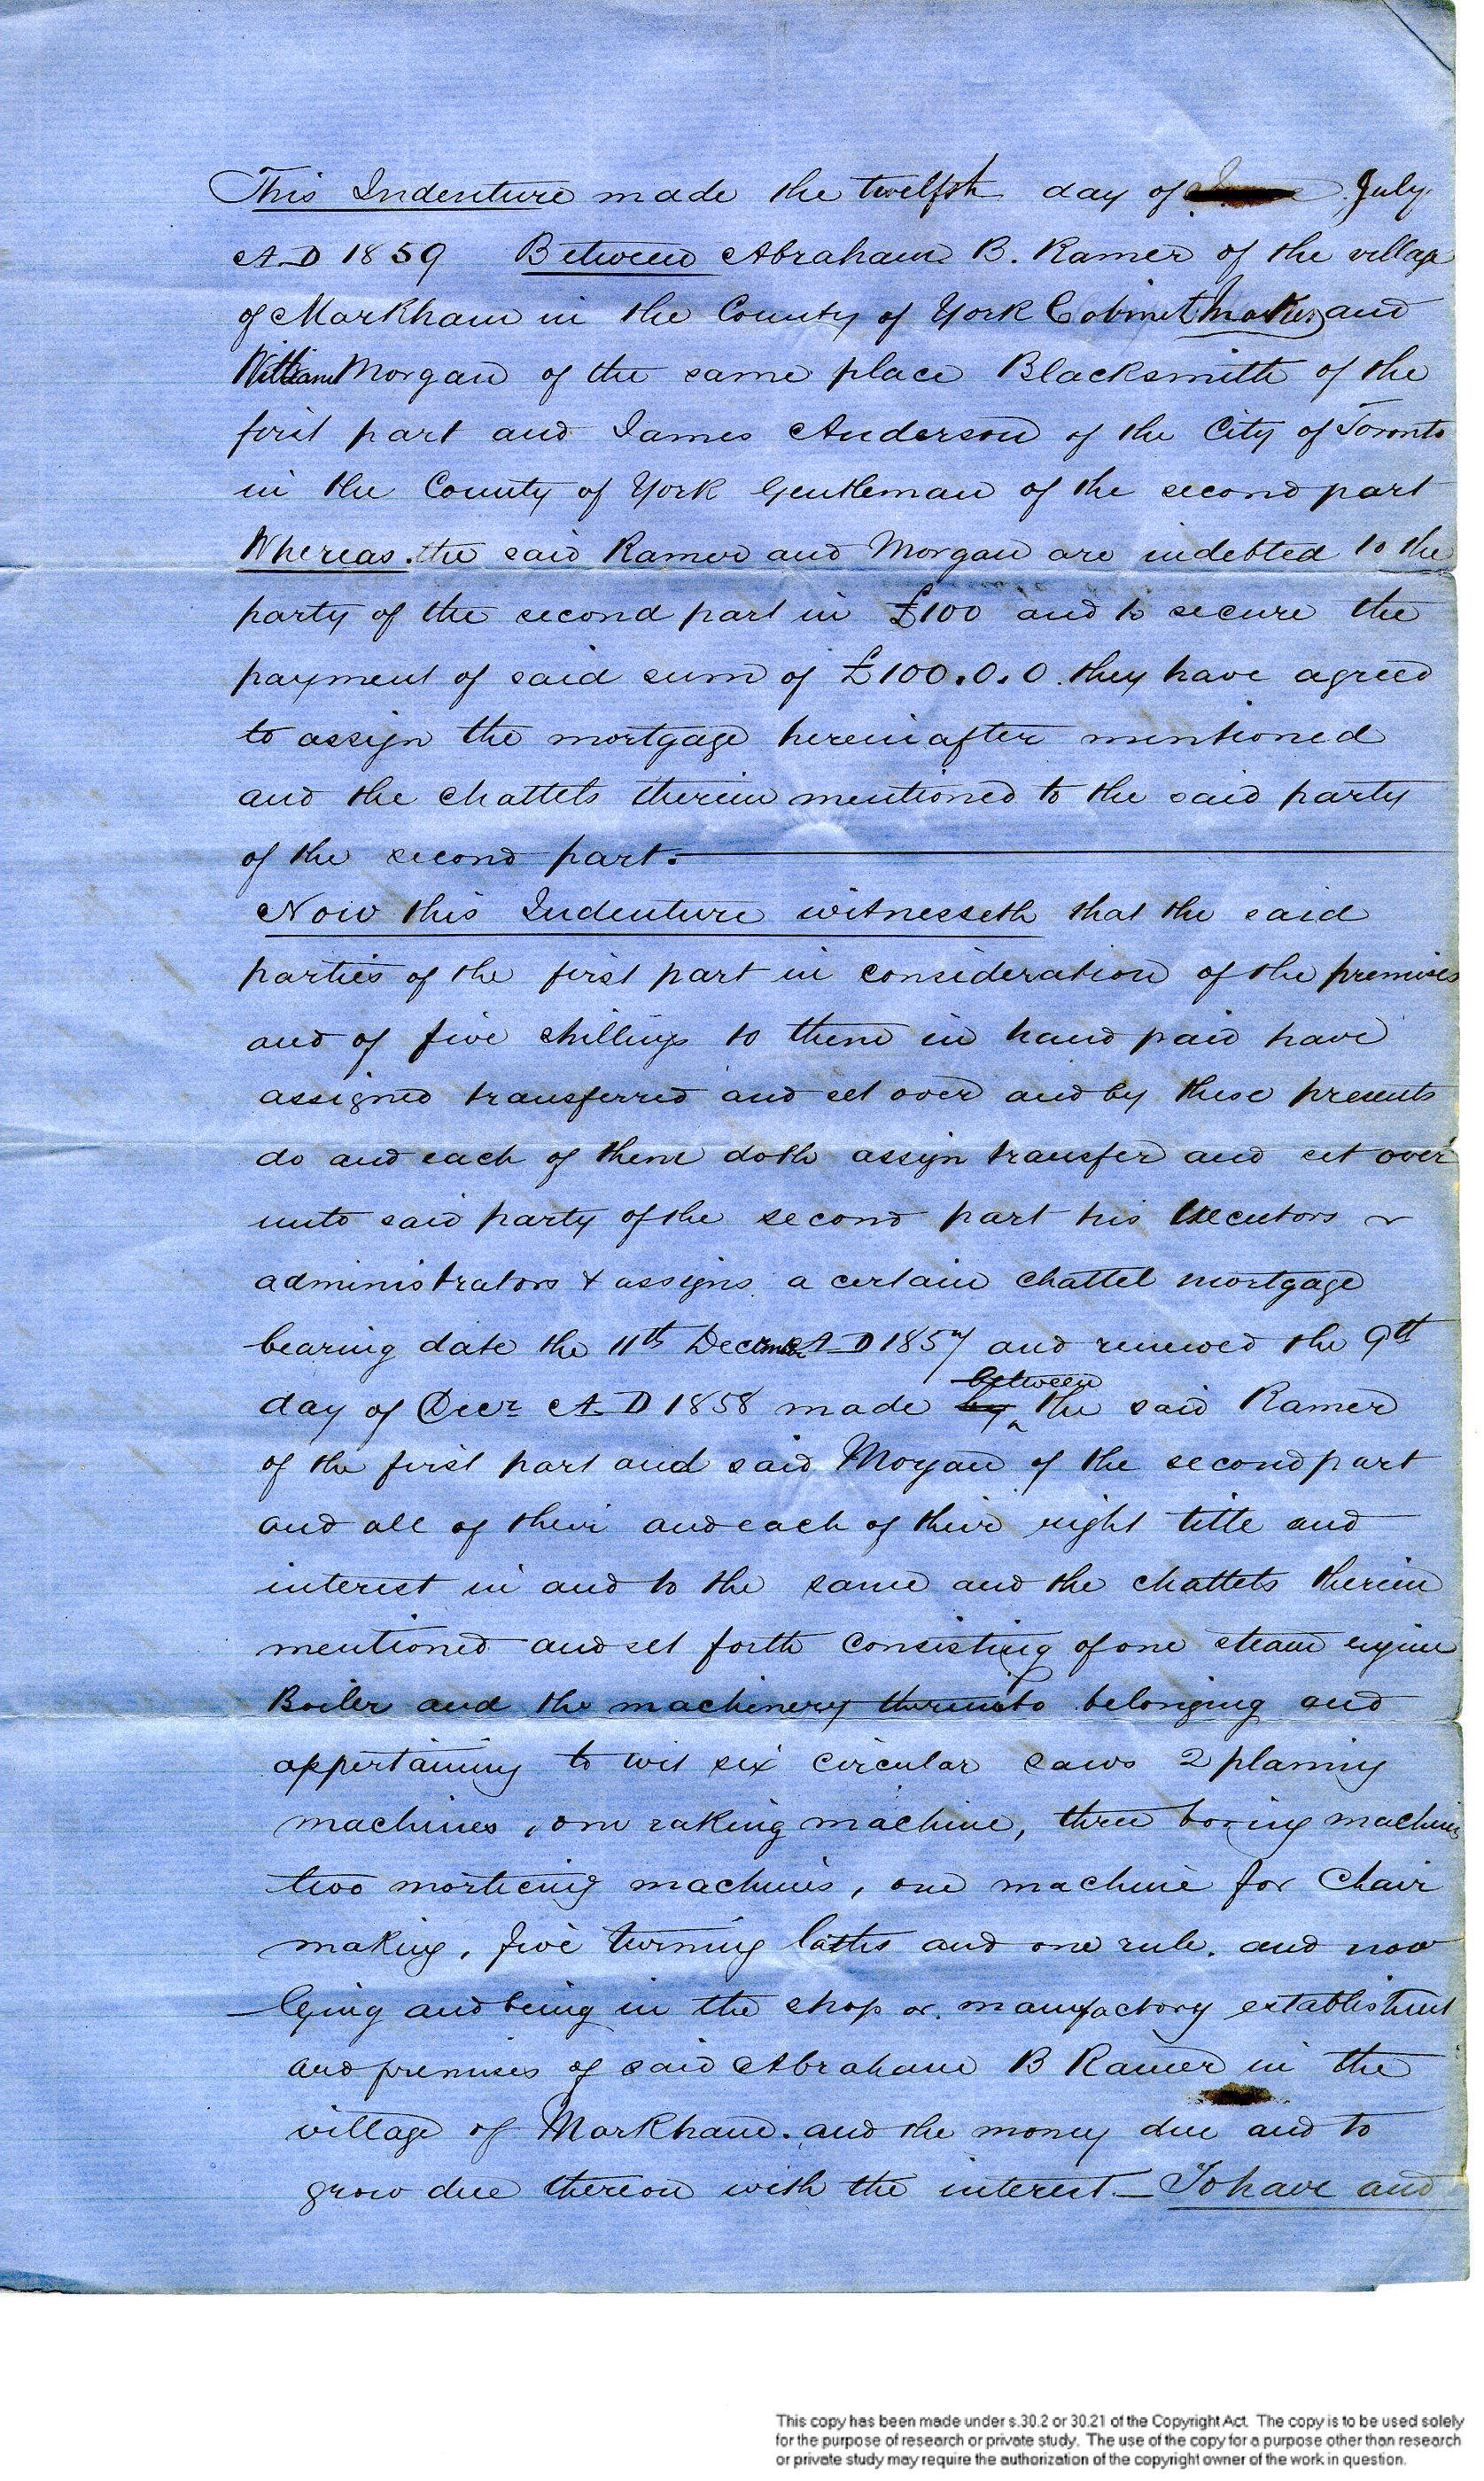 This Indenture made the twelfth day of July
A.D 1859 Between Abraham B. Ramer of the village
of Markham in the County of York Cabinet Maker and
William Morgan of the same place Blacksmith of the
first part and James Anderson of the City of Toronto
in the County of York Gentleman of the second part
Whereas the said Ramer and Morgan are indebted to the
party of the second part in £100 and to secure the
payment of said sum of £100.0.0. they have agreed
to assign the mortgage hereinafter mentioned
and the chattels therein mentioned to the said party
of the second part.
Now this Indenture witnesseth that the said
parties of the first part in consideration of the premises
and of five shillings to them in hand paid have
assigned transferred and set over and by these presents
do and each of them doth assign transfer and set over
unto said party of the second part his Executors
administrators & assigns a certain chattel mortgage
bearing date the 11th December A.D 1857 and renewed the 9th
day of Decr A.D 1858 made by between the said Ramer
of the first part and said Morgan of the second part
and all of their and each of their right title and
interest in and to the same and the chattels therein
mentioned and set forth consisting of one steam engine
Boiler and the machinery thereunto belonging and
appertaining to wit six circular saws 2 planing
machines, one raking machine, three boring machines
two morticing machines, one machine for Chair
making, five turning laths and one rule. and now
lying and being in the shop or manufactory establishment
and premises of said Abraham B Ramer in the
village of Markham. and the money due and to
grow due thereon with the interest — To have and
This copy has been made under s.30.2 or 30.21 of the Copyright Act. The copy is to be used solely
for the purpose of research or private study. The use of the copy for a purpose other than research
or private study may require the authorization of the copyright owner of the work in question.